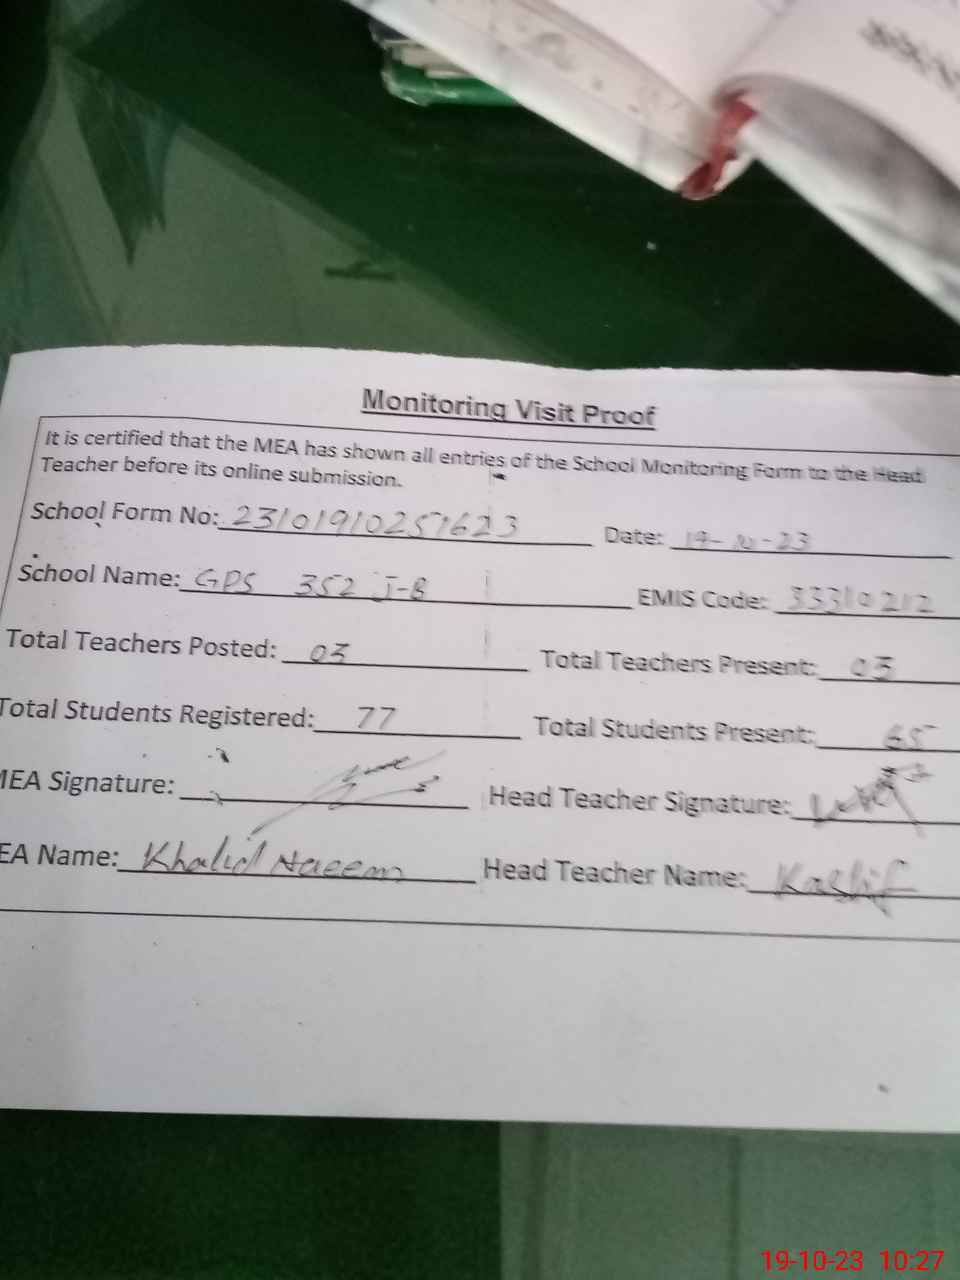 Monitoring Visit Proof
It is certified that the MEA has shown all entries of the School Monitoring Form to the Head
Teacher before its online submission.
School Form No: 23101910251623 Date: 19-10-23
School Name: GPS 352 J-B EMIS Code: 33310212
Total Teachers Posted: 03 Total Teachers Present: 03
Total Students Registered: 77 Total Students Present: 65
MEA Signature: Head Teacher Signature:
EA Name: Khalid Naeem Head Teacher Name: Kashif
19-10-23 10:27